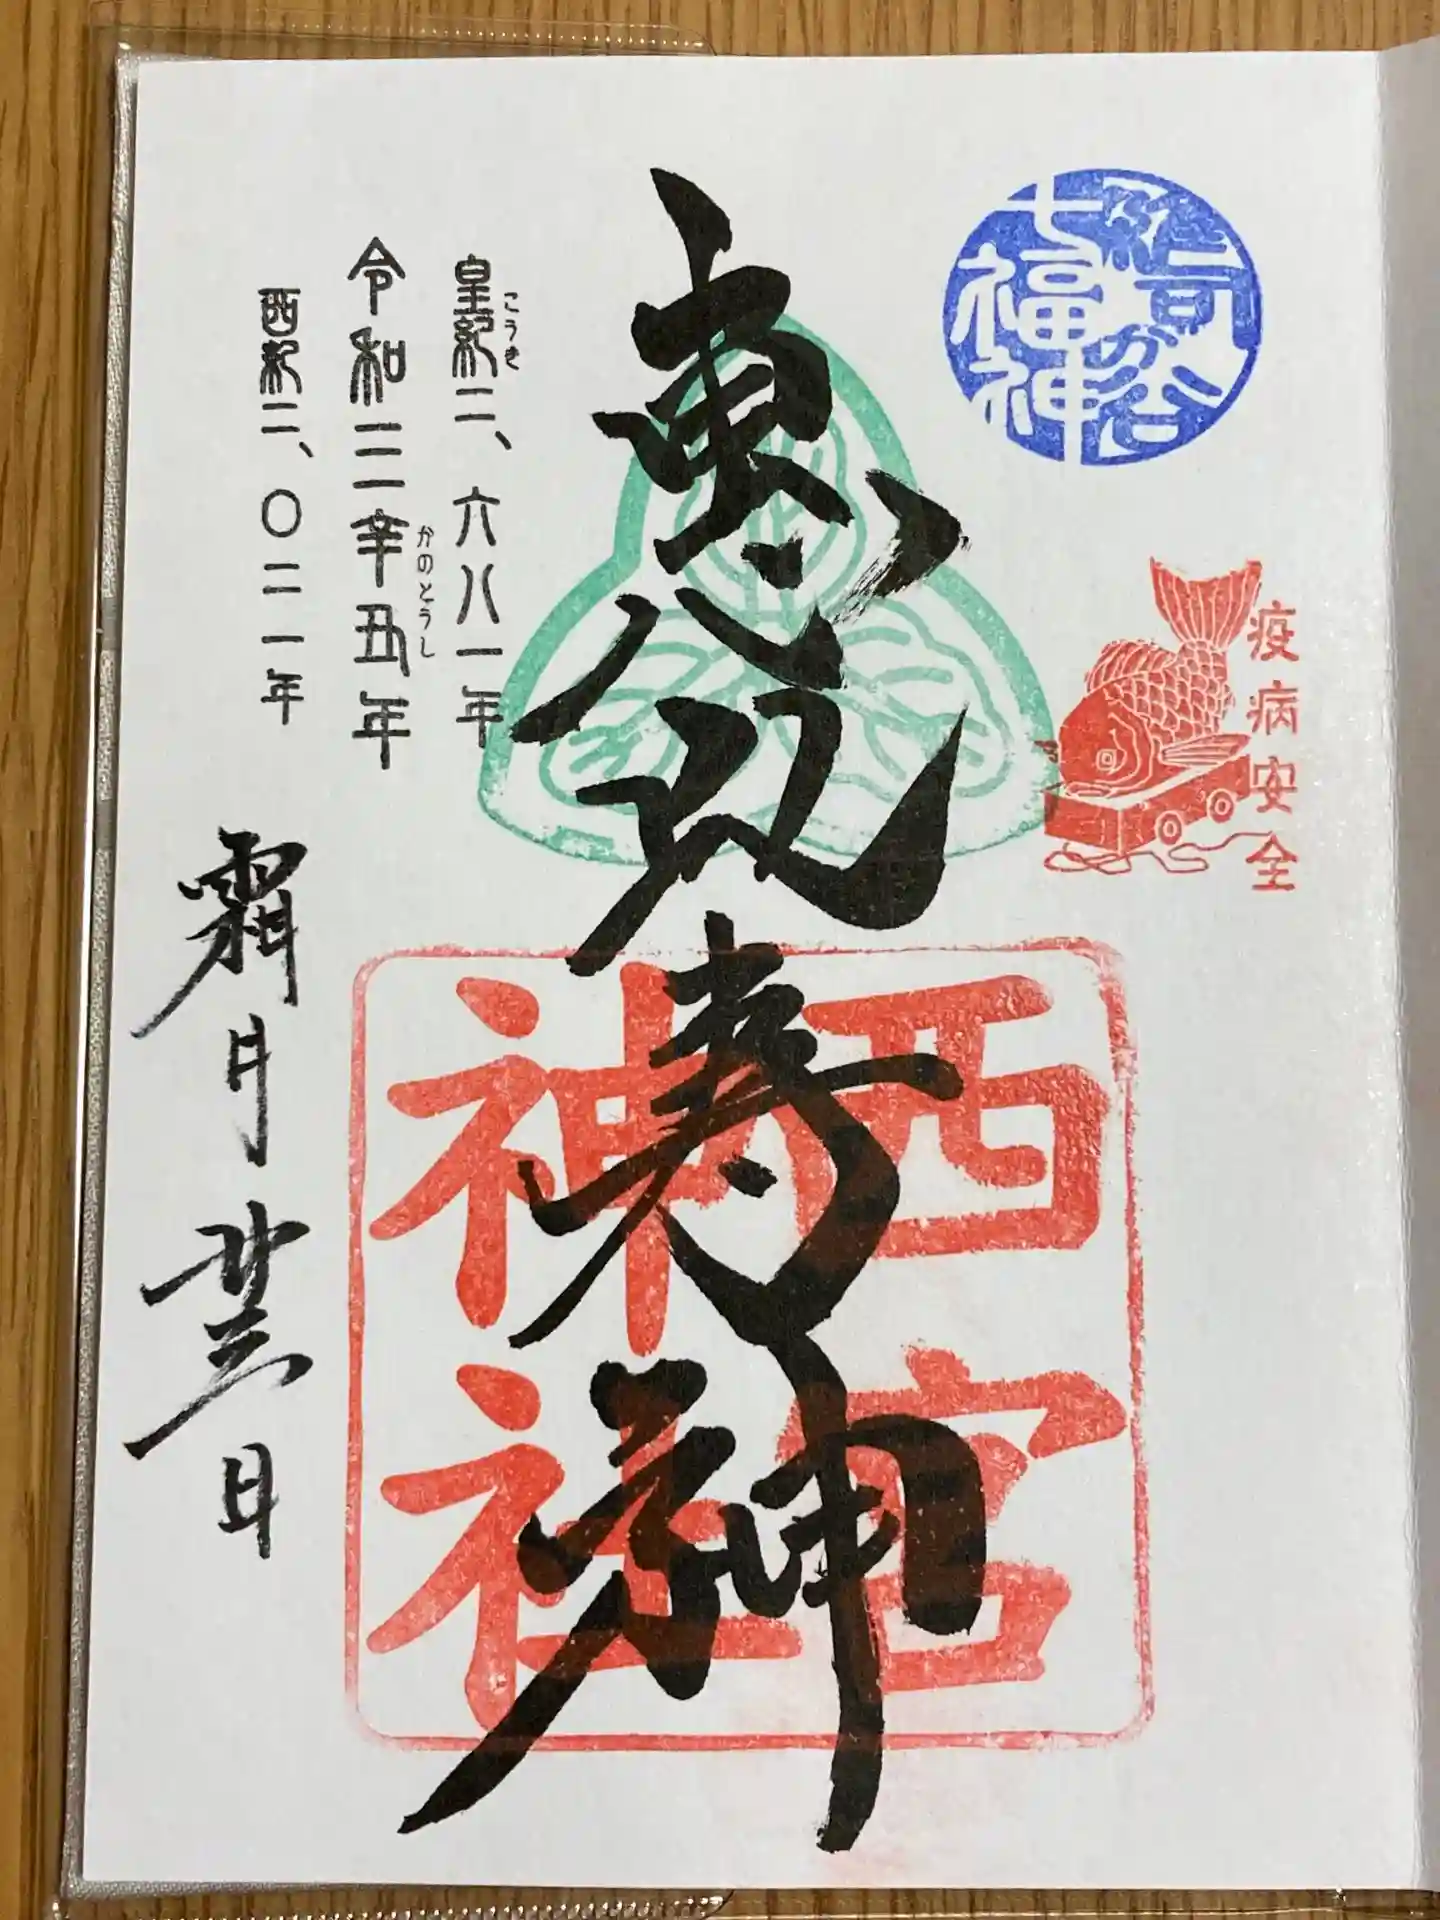 雑司が谷
七福神
疫病安全
恵比寿神
西宮
神社
こうき
皇紀二、六八一年
かのとうし
令和三辛丑年
西紀二、〇二一年
霜月廿三日